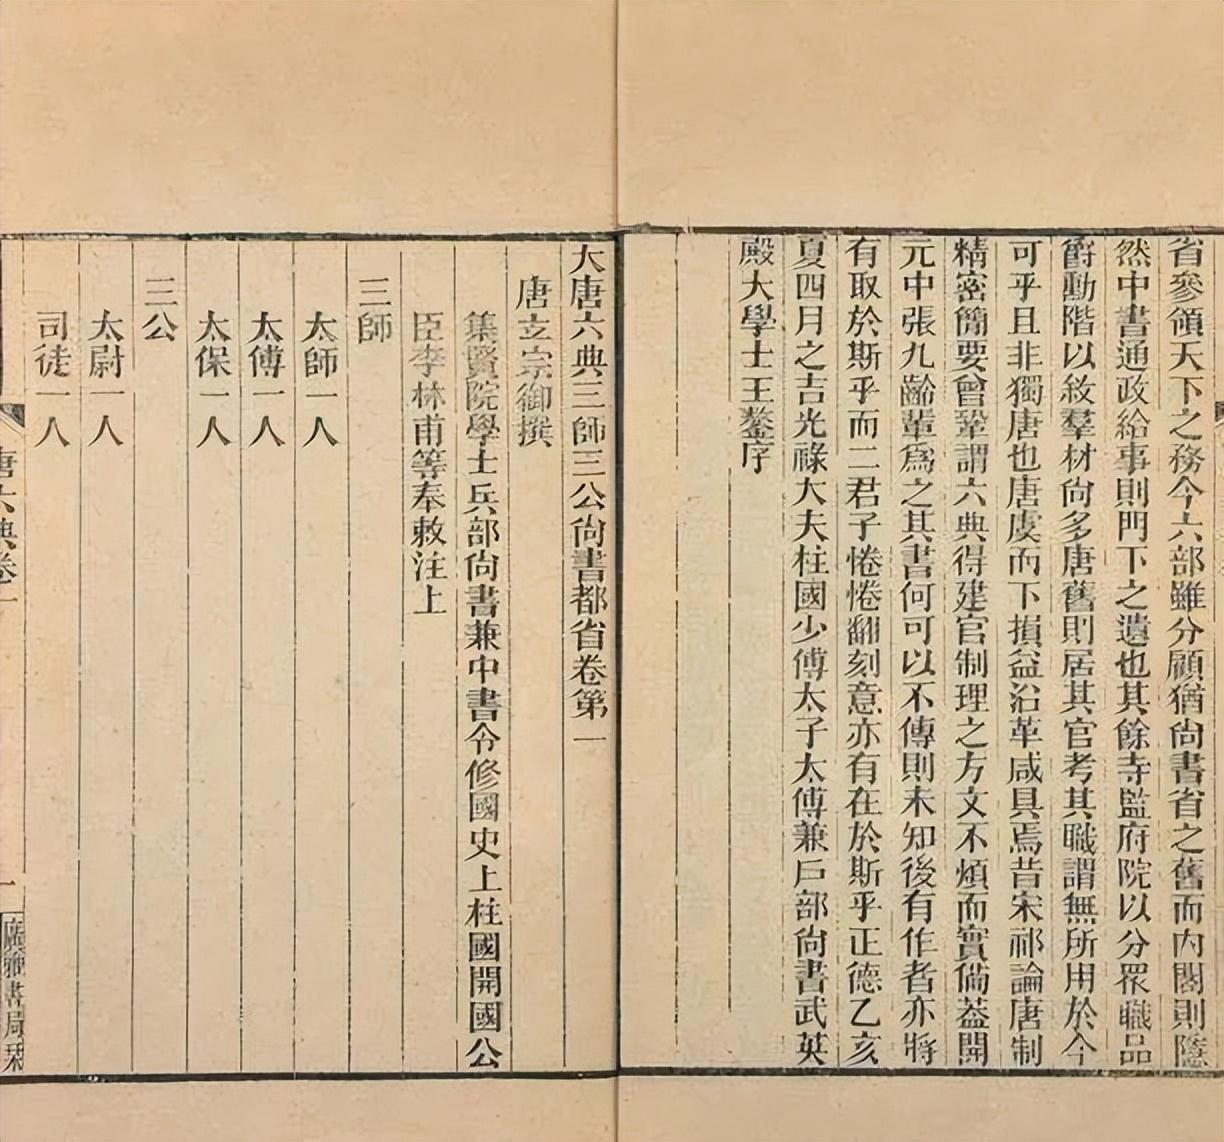 省參領天下之務今六部雖分顧猶尙書省之舊而內閣則隱
然中書通政給事則門下之遺也其餘寺監府院以分眾職品
爵勳階以敘羣材尙多唐舊則居其官考其職謂無所用於今
可乎且非獨唐也唐虞而下損益沿革咸具焉昔宋祁論唐制
精密簡要曾鞏謂六典得建官制理之方文不煩而實備葢開
元中張九齡輩爲之其書何可以不傳則未知後有作者亦將
有取於斯乎而二君子惓惓翻刻意亦有在於斯乎正德乙亥
夏四月之吉光祿大夫柱國少傅太子太傅兼戶部尙書武英
殿大學士王鏊序
大唐六典三師三公尙書都省卷第一
唐玄宗御撰
集賢院學士兵部尙書兼中書令修國史上柱國開國公
臣李林甫等奉敕注上
三師
太師一人
太傅一人
太保一人
三公
太尉一人
司徒一人
唐六典卷一
一
廣雅書局栞